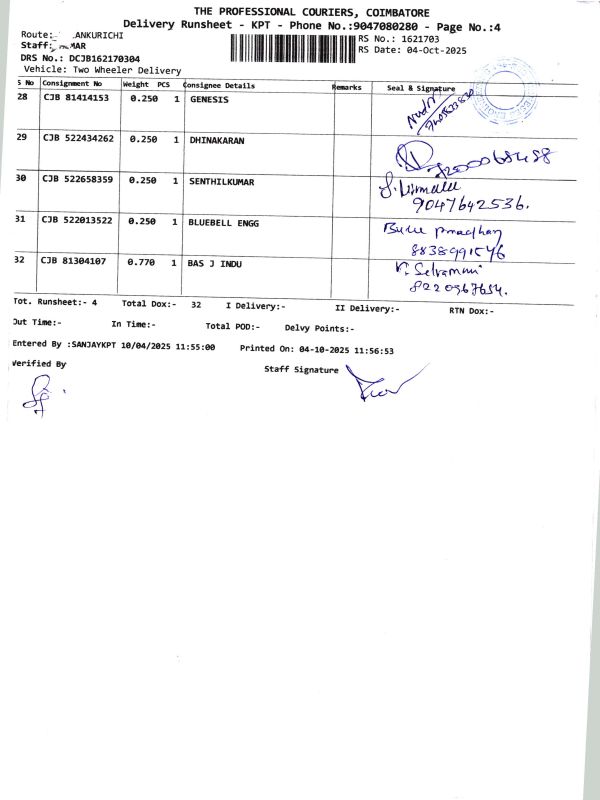 THE PROFESSIONAL COURIERS, COIMBATORE
Delivery Runsheet - KPT - Phone No.:9047080280 - Page No.:4
Route: ANKURICHI
RS No.: 1621703
Staff: MAR
RS Date: 04-Oct-2025
DRS No.: DCJB162170304
Vehicle: Two Wheeler Delivery
S No Consignment No Weight PCS Consignee Details Remarks Seal & Signature
28 CJB 81414153 0.250 1 GENESIS
29 CJB 522434262 0.250 1 DHINAKARAN
30 CJB 522658359 0.250 1 SENTHILKUMAR
9047642536.
31 CJB 522013522 0.250 1 BLUEBELL ENGG
8838991576
32 CJB 81304107 0.770 1 BAS J INDU K. Selvamani
8220567654.
Tot. Runsheet:- 4 Total Dox:- 32 I Delivery:- II Delivery:- RTN Dox:-
Out Time:- In Time:- Total POD:- Delvy Points:-
Entered By :SANJAYKPT 10/04/2025 11:55:00 Printed On: 04-10-2025 11:56:53
Verified By Staff Signature